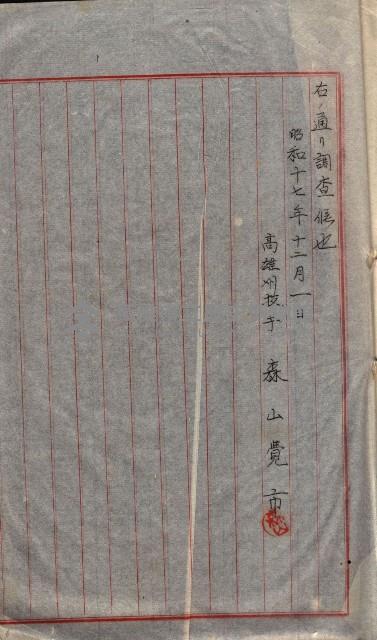 右ノ通リ調査候也
昭和十七年十二月一日
高雄州技手 森山覺市